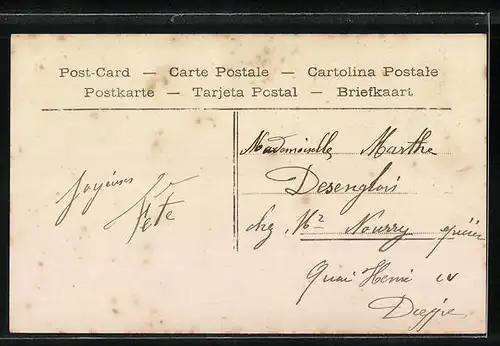 Post-Card — Carte Postale — Cartolina Postale
Postkarte — Tarjeta Postal — Briefkaart
Joyeuse
Fête
Mademoiselle Marthe
Desenglois
chez Mr Nourry épicier
Quai Henri IV
Dieppe